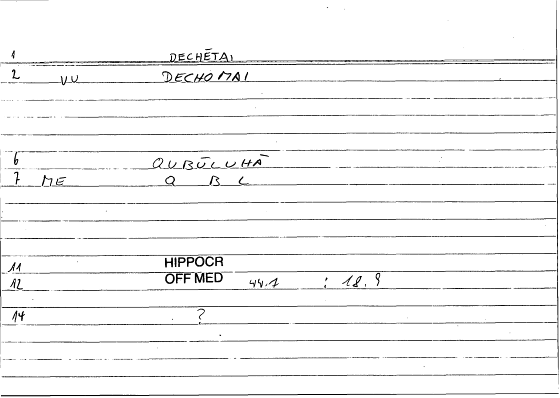 1 DECHĒTAI
2 VU DECHOMAI
6 QUBŪLUHĀ
7 ME Q B L
11 HIPPOCR
12 OFF MED 44.1 : 18.9
14 ?